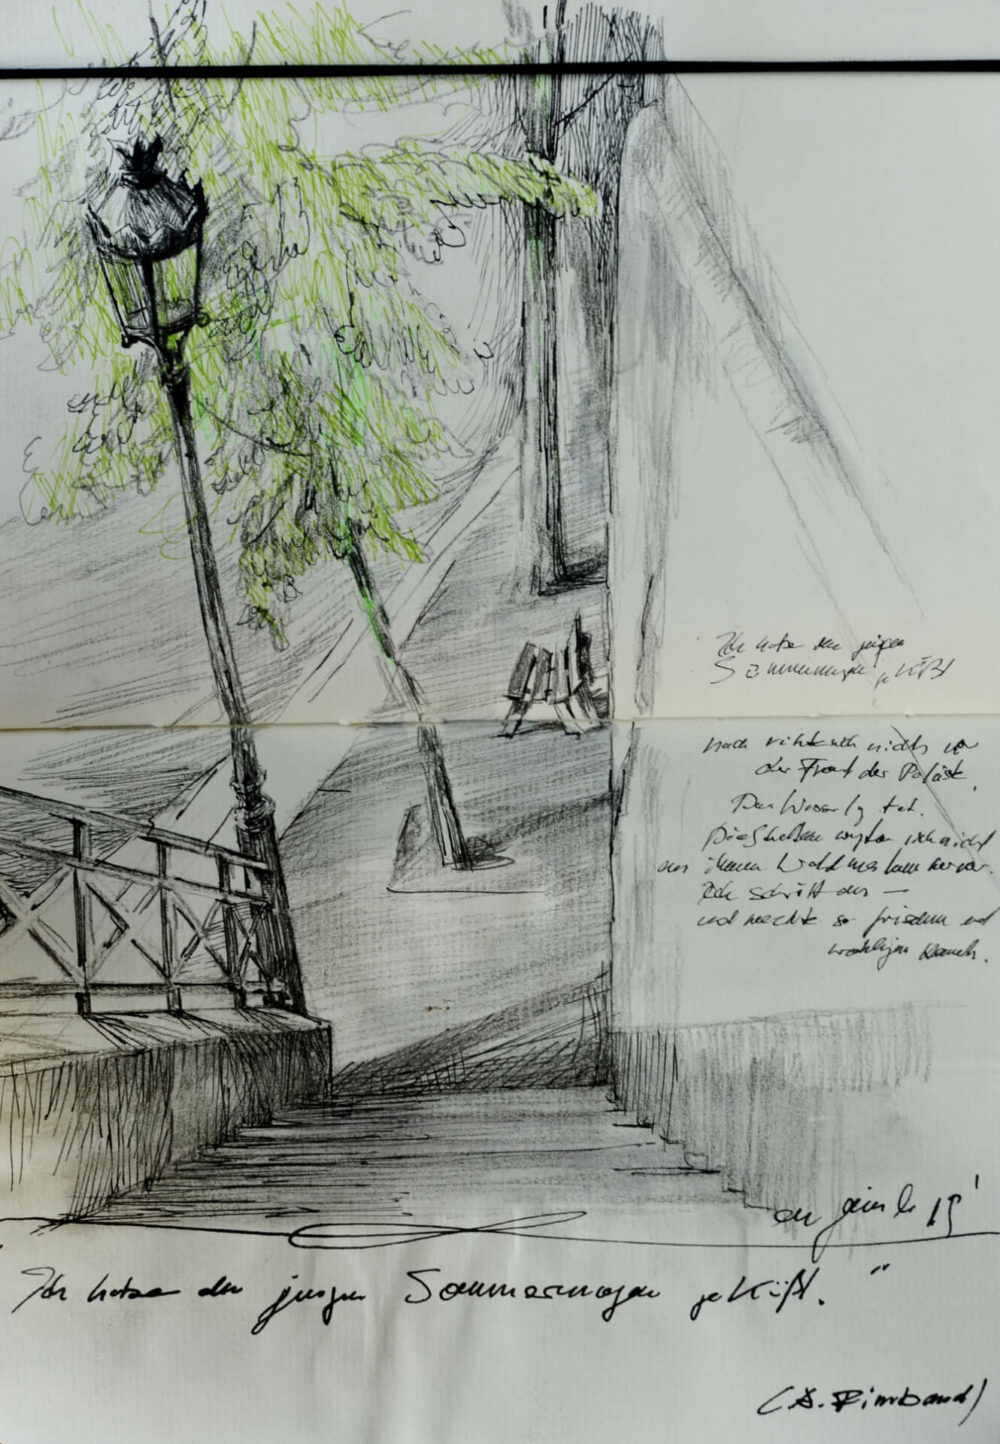 Ich habe den jungen
Sommermorgen geküßt
noch rührte sich nichts vor
der Front der Paläste.
Das Wasser lag tot.
Die Schatten nicht
aus ihrem Wald
Ich schritt aus —
und weckte so frischen und
wohligen Hauch.
le 19'
Ich habe den jungen Sommermorgen geküßt."
(A. Rimbaud)